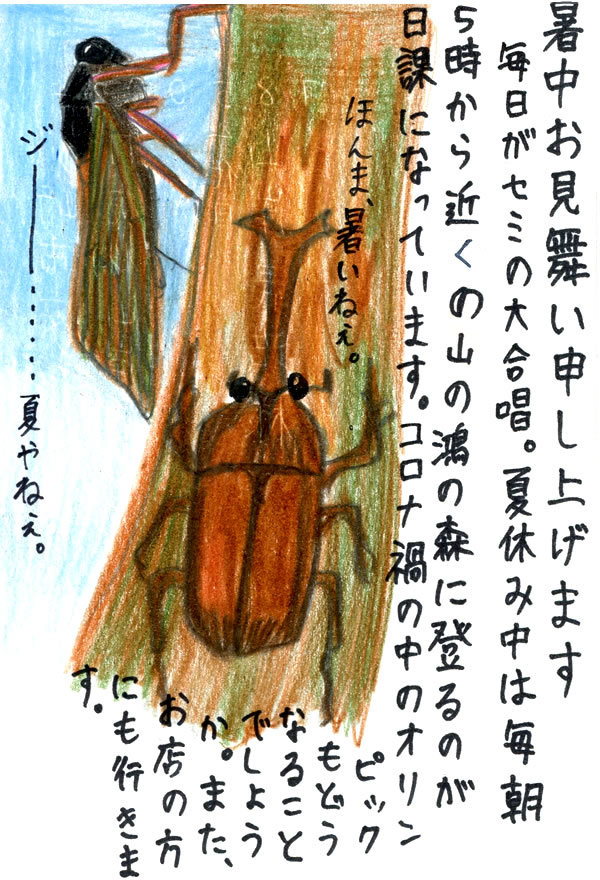 暑中お見舞い申し上げます
毎日がセミの大合唱。夏休み中は毎朝
5時から近くの山の鴻の森に登るのが
日課になっています。コロナ禍の中のオリン
ピック
もどう
なること
でしょう
か。また、
お店の方
にも行きま
す。
ほんま、暑いねぇ。
ジー――……夏やねぇ。